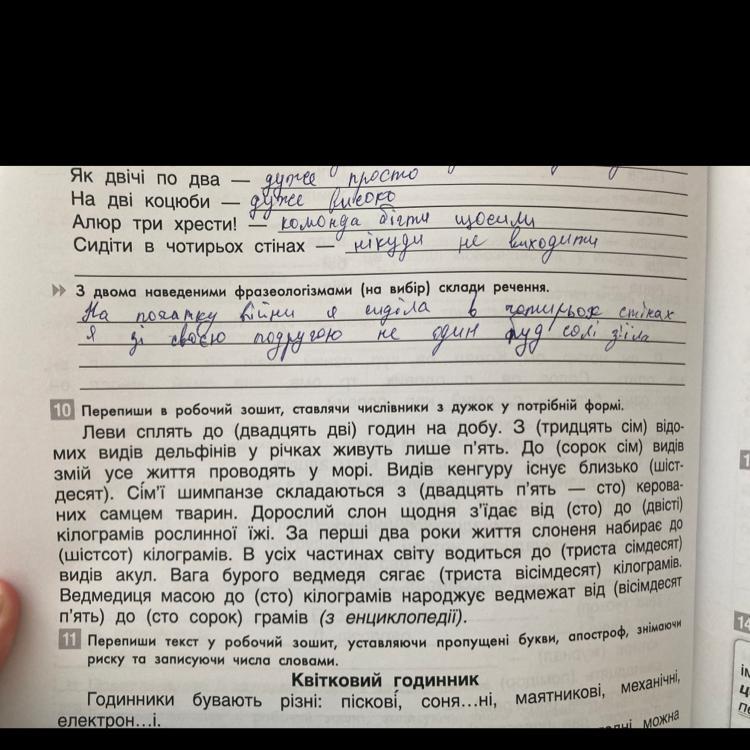 Як двічі по два — дуже просто
На дві коцюби — дуже високо
Алюр три хрести! — команда бігти щосили
Сидіти в чотирьох стінах — нікуди не виходити
З двома наведеними фразеологізмами (на вибір) склади речення.
На початку війни я сиділа в чотирьох стінах
Я зі своєю подругою не один пуд солі з'їла
10 Перепиши в робочий зошит, ставлячи числівники з дужок у потрібній формі.
Леви сплять до (двадцять дві) годин на добу. З (тридцять сім) відо-
мих видів дельфінів у річках живуть лише п'ять. До (сорок сім) видів
змій усе життя проводять у морі. Видів кенгуру існує близько (шіст-
десят). Сім'ї шимпанзе складаються з (двадцять п'ять — сто) керова-
них самцем тварин. Дорослий слон щодня з'їдає від (сто) до (двісті)
кілограмів рослинної їжі. За перші два роки життя слоненя набирає до
(шістсот) кілограмів. В усіх частинах світу водиться до (триста сімдесят)
видів акул. Вага бурого ведмедя сягає (триста вісімдесят) кілограмів.
Ведмедиця масою до (сто) кілограмів народжує ведмежат від (вісімдесят
п'ять) до (сто сорок) грамів (з енциклопедії).
11 Перепиши текст у робочий зошит, уставляючи пропущені букви, апостроф, знімаючи
риску та записуючи числа словами.
Квітковий годинник
Годинники бувають різні: піскові, соня...ні, маятникові, механічні,
електрон...і.
можна
14